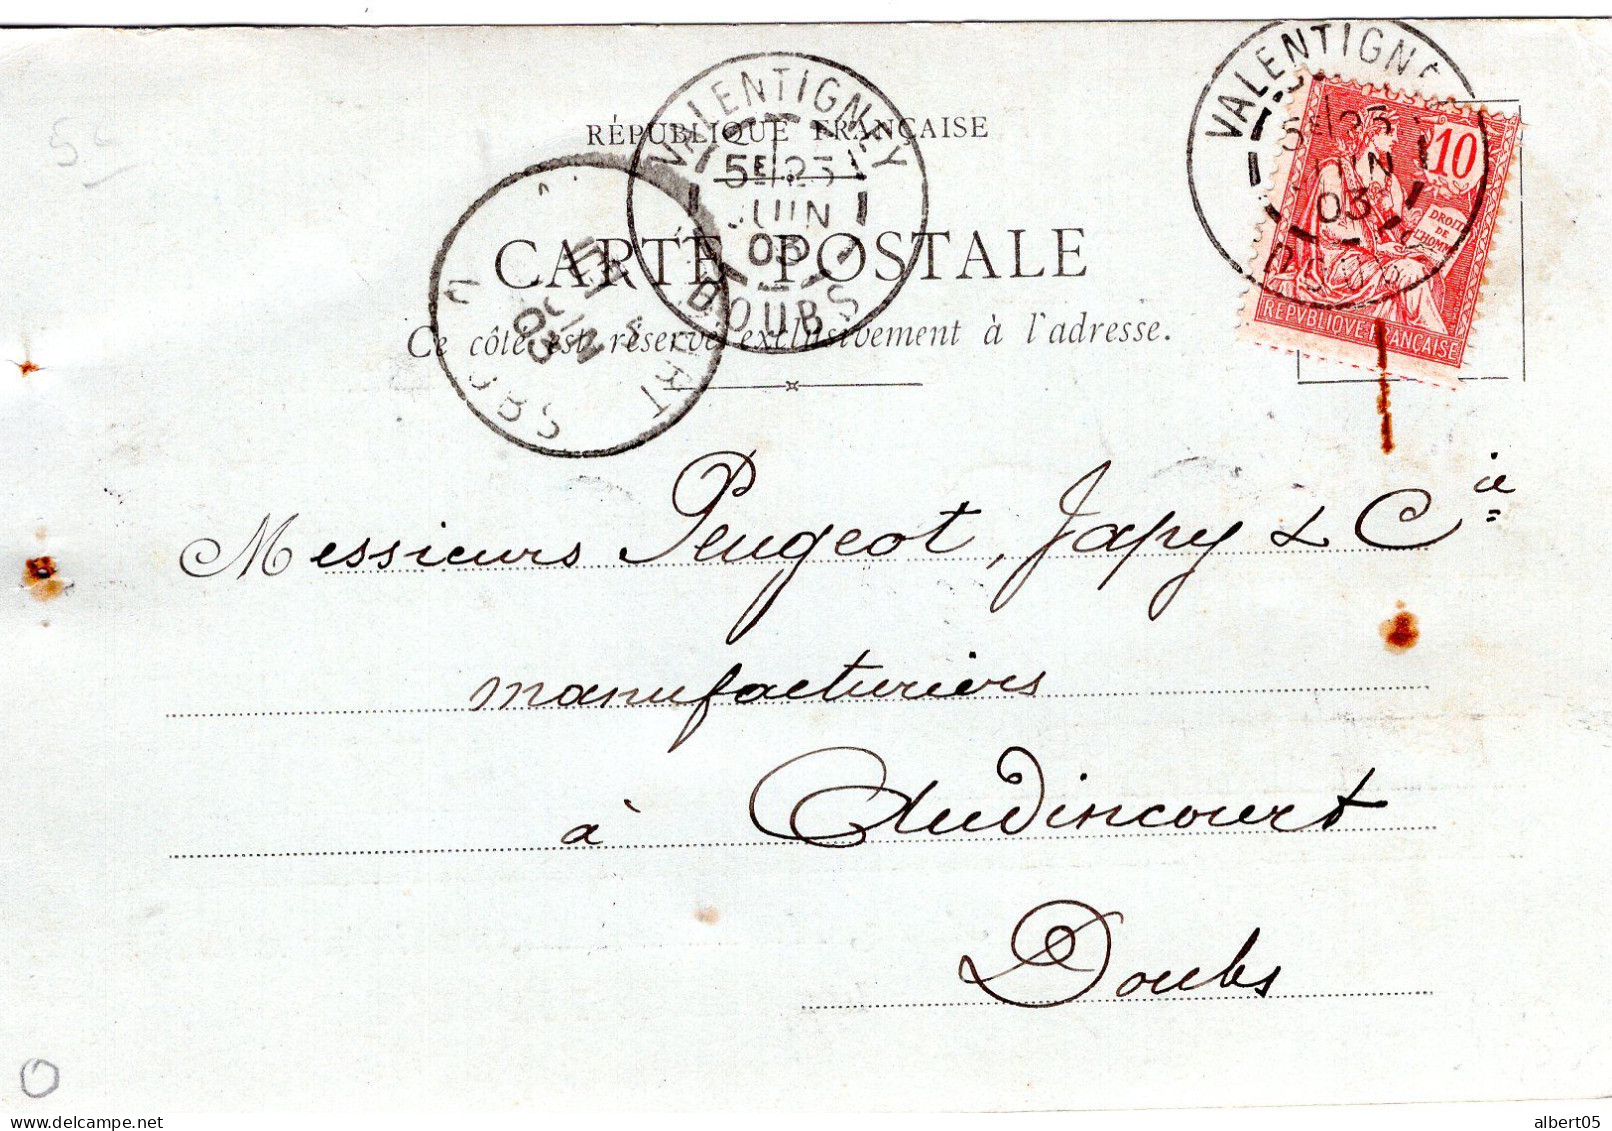 5
RÉPUBLIQUE FRANÇAISE
CARTE POSTALE
Ce côté est réservé exclusivement à l'adresse.
VALENTIGNEY
5E 23
JUIN
03
DOUBS
VALENTIGN
5E 23
JUIN
03
DOUBS
10
DROITS
DE
L'HOMME
REPVBLIQVE FRANÇAISE
JUIN
03
Messieurs Peugeot, Japy & Cie
manufacturiers
à Audincourt
Doubs
albert05